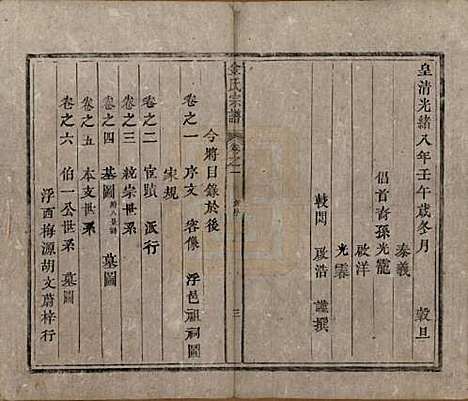 皇清光緒八年壬午歲冬月　穀旦
泰義
倡首裔孫光寵
啟洋
光霖
較閱　啟浩　謹撰
金氏宗譜　卷之一　三
今將目錄於後
卷之一　序文　容像　浮邑祖祠圖
家規
卷之二　宦蹟　派行
卷之三　統宗世系
卷之四　基圖　墓圖
卷之五　本支世系
卷之六　伯一公世系　墓圖
浮西梅源胡文蔚梓行